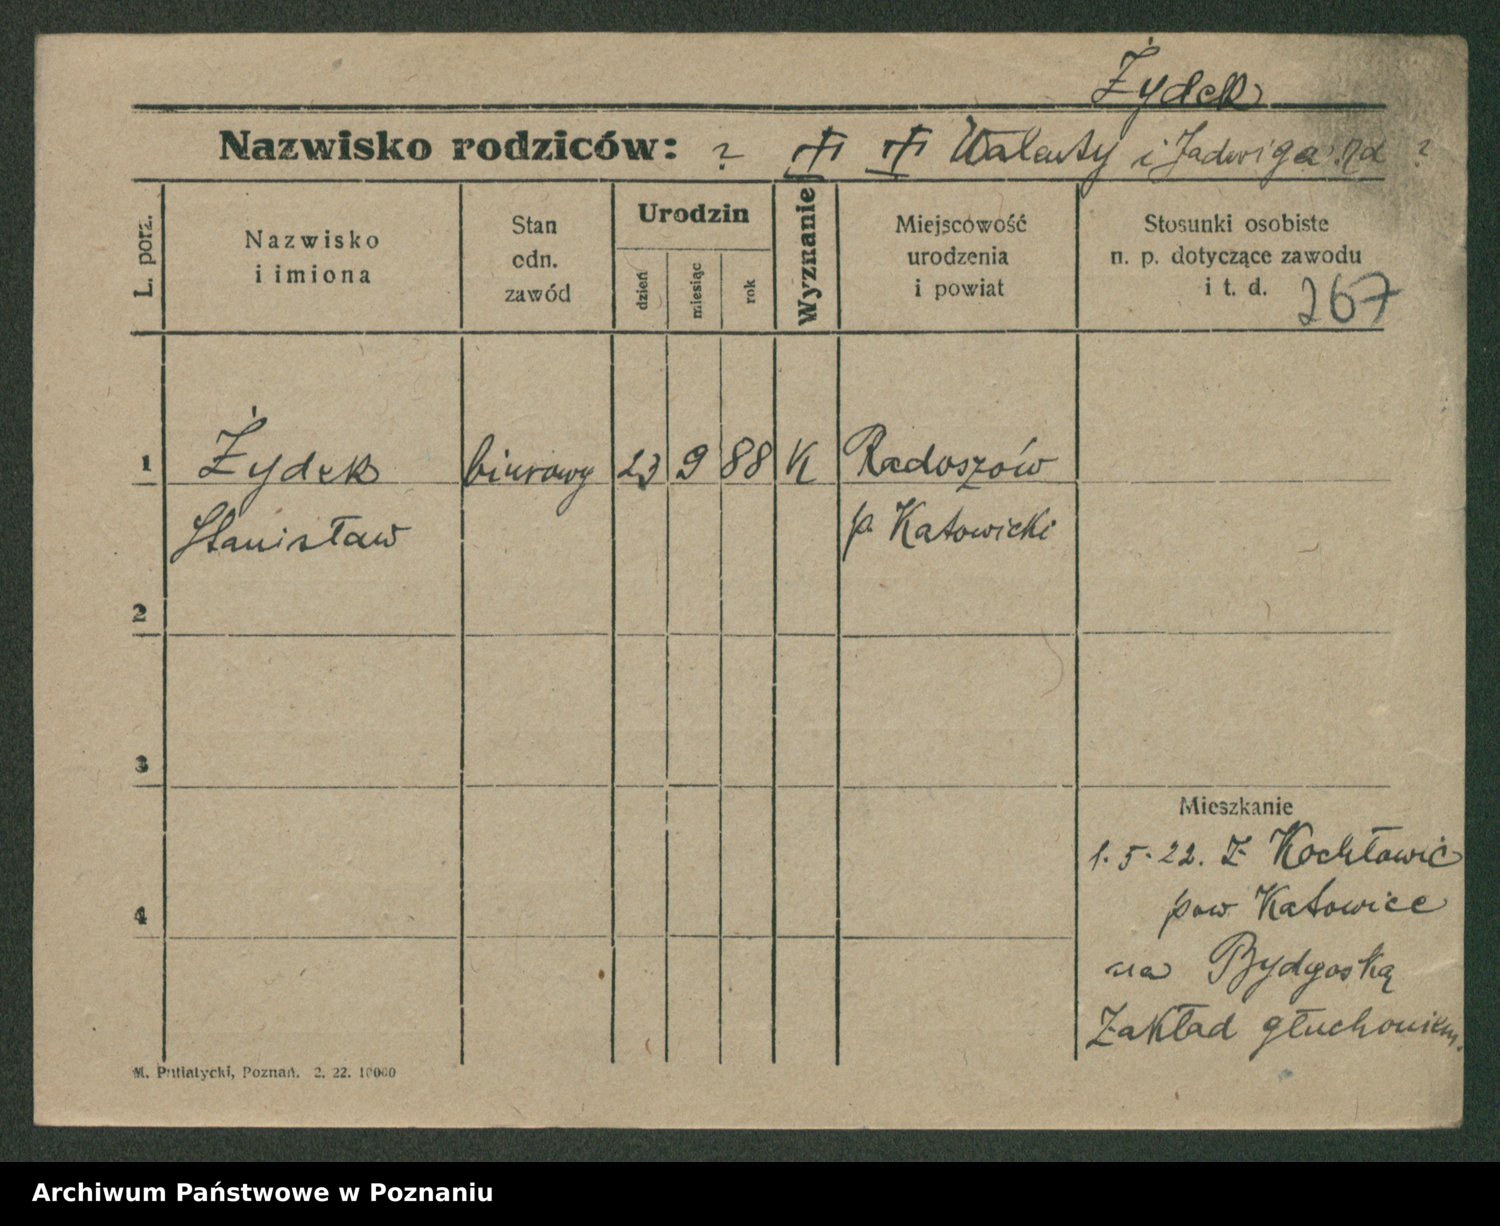 Żydek
Nazwisko rodziców: ? Walenty i Jadwiga ?
L. porz.
Nazwisko
i imiona
Stan
edn.
zawód
Urodzin
dzień
miesiąc
rok
Wyznanie
Miejscowość
urodzenia
i powiat
Stosunki osobiste
n. p. dotyczące zawodu
i t. d. 267
1 Żydek biurowy 23 9 88 K Radoszów
Stanisław p. Katowicki
2
3
Mieszkanie
1.5.22. Z Kochłowic
pow Katowice
4
na Bydgoską
Zakład głuchoniem.
M. Putiatycki, Poznań. 2. 22. 10000
Archiwum Państwowe w Poznaniu